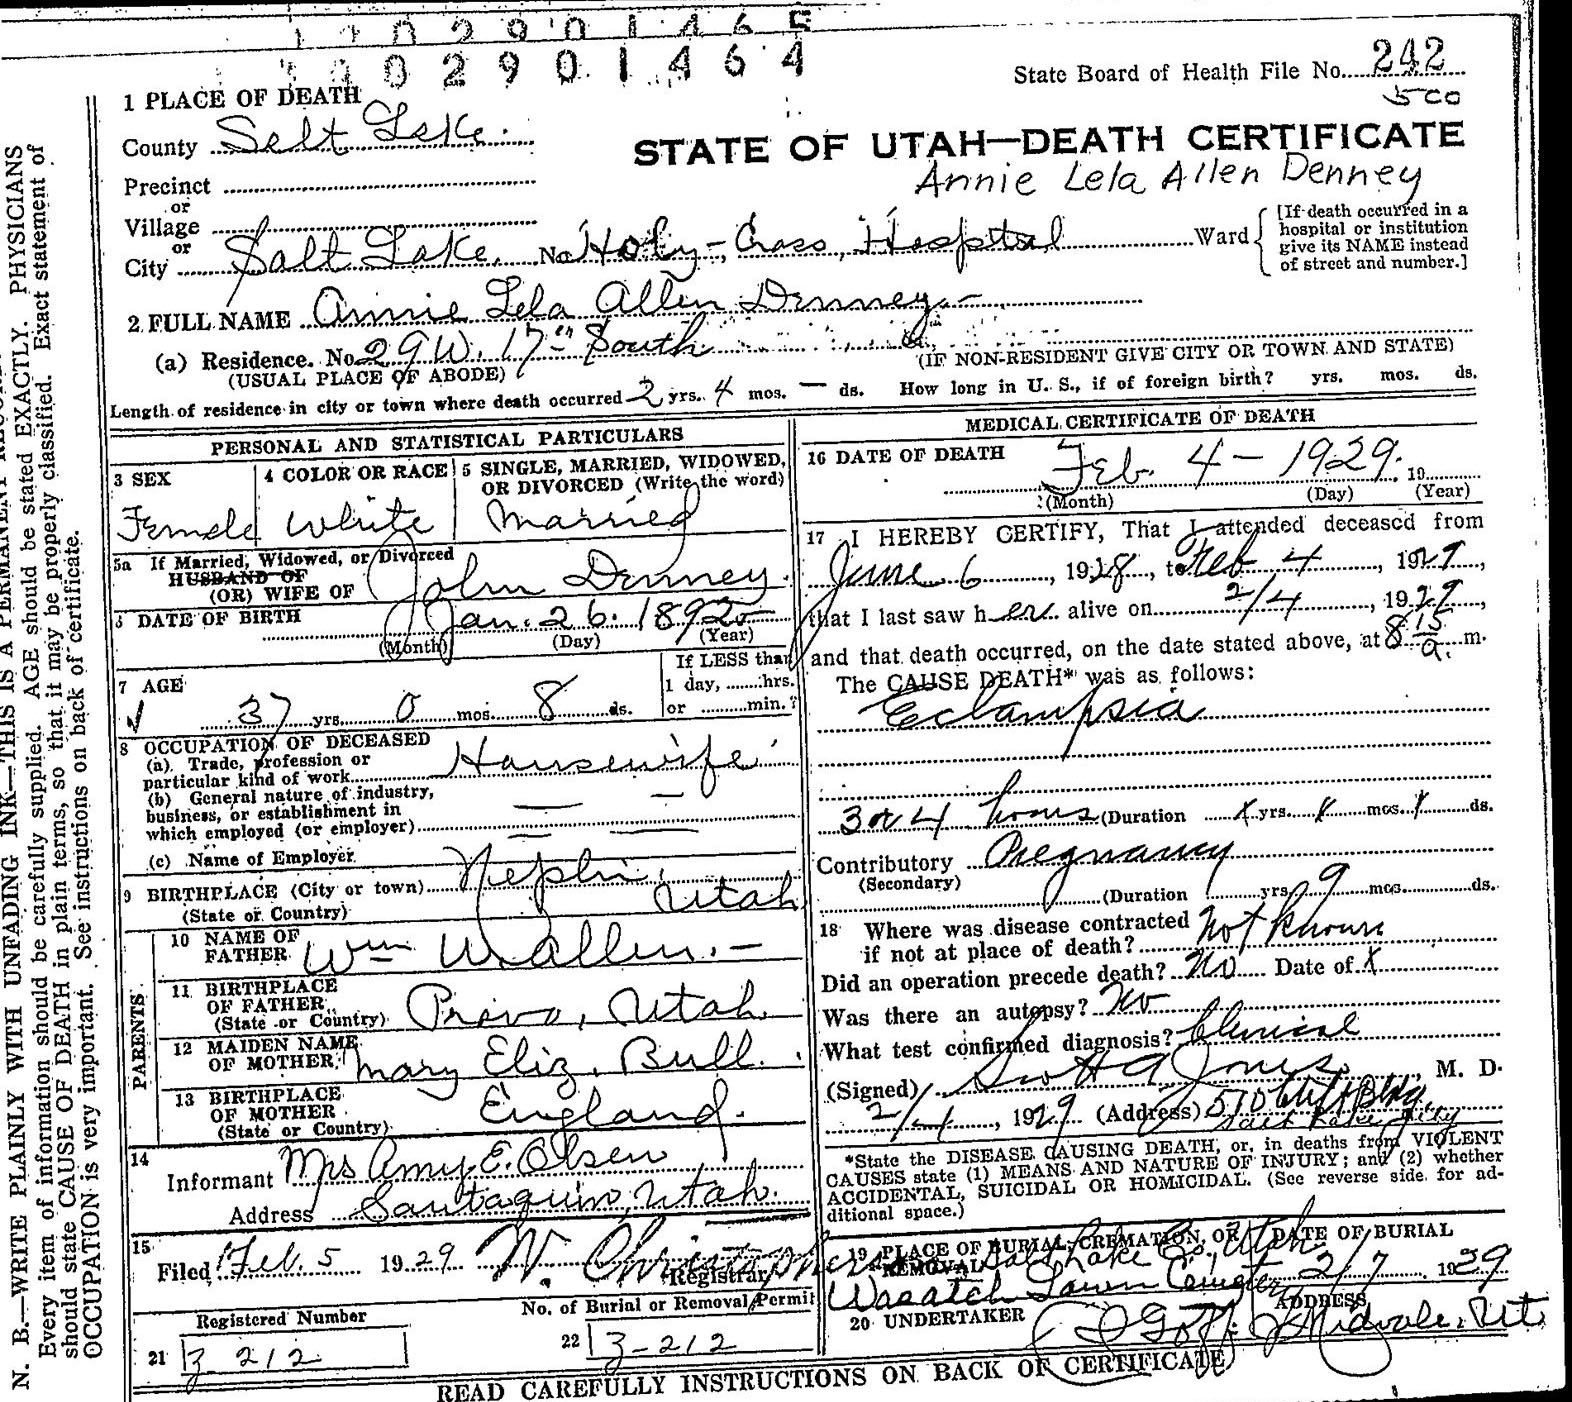 1102901465
1102901464
State Board of Health File No. 242
500
1 PLACE OF DEATH
County Salt Lake.
STATE OF UTAH—DEATH CERTIFICATE
Annie Lela Allen Denney
Precinct
or
Village
or
City Salt Lake. No. Holy-Cross, Hospital Ward
[If death occurred in a
hospital or institution
give its NAME instead
of street and number.]
2 FULL NAME Annie Lela Allen Denney.-
(a) Residence. No. 29 W. 17th South
(USUAL PLACE OF ABODE)
(IF NON-RESIDENT GIVE CITY OR TOWN AND STATE)
Length of residence in city or town where death occurred 2 yrs. 4 mos. — ds. How long in U. S., if of foreign birth? yrs. mos. ds.
PERSONAL AND STATISTICAL PARTICULARS
3 SEX
Female
4 COLOR OR RACE
White
5 SINGLE, MARRIED, WIDOWED,
OR DIVORCED (Write the word)
Married
5a If Married, Widowed, or Divorced
HUSBAND OF
(OR) WIFE OF John Denney.
6 DATE OF BIRTH Jan. 26. 1892
(Month) (Day) (Year)
7 AGE
37 yrs. 0 mos. 8 ds.
If LESS than
1 day, ......hrs.
or ..........min.?
8 OCCUPATION OF DECEASED
(a) Trade, profession or
particular kind of work Housewife
(b) General nature of industry,
business, or establishment in
which employed (or employer)
(c) Name of Employer
9 BIRTHPLACE (City or town) Nephi,
(State or Country) Utah
PARENTS
10 NAME OF
FATHER Wm W. Allen.-
11 BIRTHPLACE
OF FATHER
(State or Country) Provo, Utah.
12 MAIDEN NAME
OF MOTHER Mary Eliz. Bull.
13 BIRTHPLACE
OF MOTHER
(State or Country) England.
14
Informant Mrs Amy E. Olsen
Address Santaquin, Utah.
15
Filed Feb. 5 1929 W. Christophersen
Registrar
Registered Number
21 Z 212
No. of Burial or Removal Permit
22 Z-212
MEDICAL CERTIFICATE OF DEATH
16 DATE OF DEATH Feb. 4 - 1929. 19
(Month) (Day) (Year)
17 I HEREBY CERTIFY, That I attended deceased from
June 6, 1928, to Feb 4, 1929,
that I last saw her alive on 2/4, 1929,
and that death occurred, on the date stated above, at 8 15 a. m.
The CAUSE DEATH* was as follows:
Eclampsia
3 or 4 hours (Duration x yrs. x mos. x ds.
Contributory Pregnancy
(Secondary)
(Duration yrs. 9 mos. ds.
18 Where was disease contracted
if not at place of death? Not known
Did an operation precede death? No Date of x
Was there an autopsy? No
What test confirmed diagnosis? Clinical
(Signed) Jones, M. D.
2/4, 1929 (Address) 510 Bldg.
Salt Lake City
*State the DISEASE CAUSING DEATH, or, in deaths from VIOLENT
CAUSES state (1) MEANS AND NATURE OF INJURY; and (2) whether
ACCIDENTAL, SUICIDAL OR HOMICIDAL. (See reverse side for ad-
ditional space.)
19 PLACE OF BURIAL, CREMATION, OR
REMOVAL Salt Lake Co., Utah.
Wasatch Lawn Cemetery
DATE OF BURIAL
2/7 1929
20 UNDERTAKER
Goff.
ADDRESS
Midvale. Ut
READ CAREFULLY INSTRUCTIONS ON BACK OF CERTIFICATE
N. B.—WRITE PLAINLY WITH UNFADING INK—THIS IS A PERMANENT
Every item of information should be carefully supplied. AGE should be stated EXACTLY. PHYSICIANS
should state CAUSE OF DEATH in plain terms, so that it may be properly classified. Exact statement of
OCCUPATION is very important. See instructions on back of certificate.